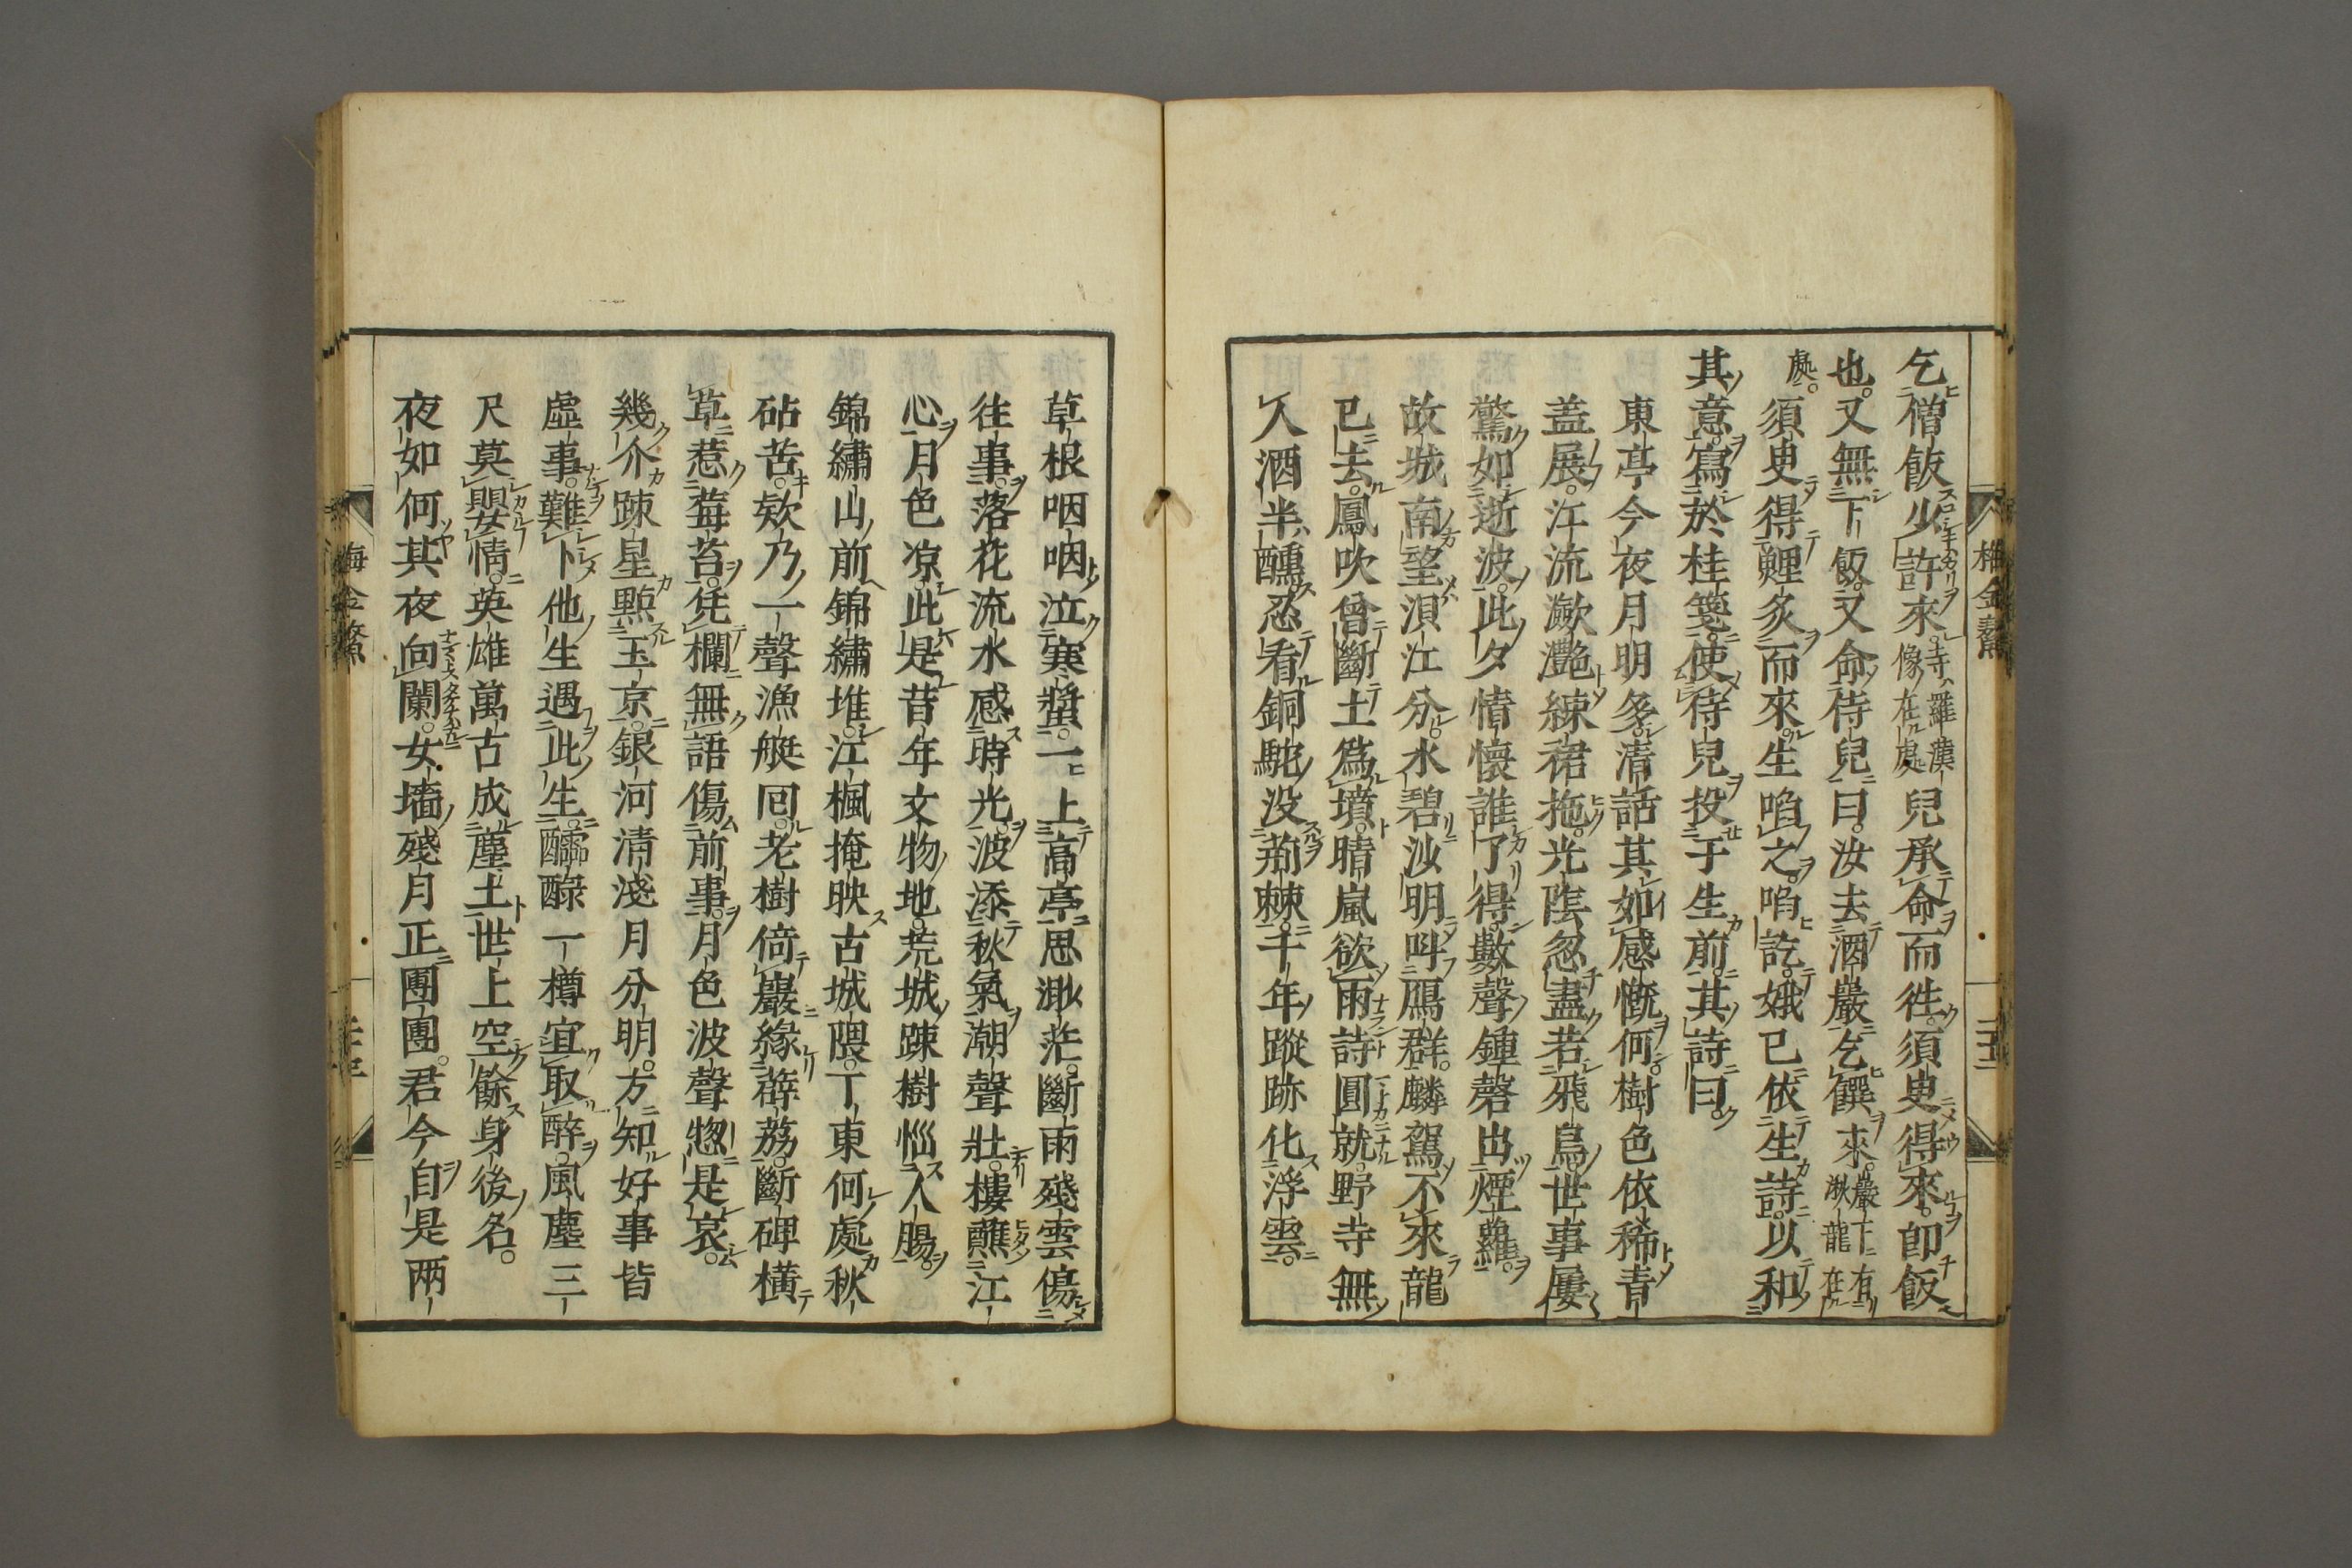 梅金鰲
乞僧飯少許來寺羅漢像在處兒承命而徃須臾得來即飯
也。又無下飯。又命侍兒曰。汝去酒巖乞饌來。酒巖下有湫龍在
處。須臾得鯉炙而來。生啗之。啗訖。娥已依生詩。以和
其意。寫於桂箋。使侍兒投于生前。其詩曰。
東亭今夜月明多。清話其如感慨何。樹色依稀青
盖展。江流瀲灧練裙拖。光陰忽盡若飛鳥。世事屢
驚如逝波。此夕情懷誰了得。數聲鍾磬出煙蘿。
故城南望浿江分。水碧沙明呌鴈群。麟駕不來龍
已去。鳳吹曾斷土爲墳。晴嵐欲雨詩圓就。野寺無
人酒半醺。忍看銅駝没荊棘。千年蹤跡化浮雲。
草根咽咽泣寒螿。一上高亭思渺茫。斷雨殘雲傷
往事。落花流水感時光。波添秋氣潮聲壯。樓蘸江
心月色凉。此是昔年文物地。荒城踈樹惱人腸。
錦繡山前錦繡堆。江楓掩映古城隈。丁東何處秋
砧苦。欸乃一聲漁艇回。老樹倚巖緣薜荔。斷碑橫
草惹莓苔。凭欄無語傷前事。月色波聲惣是哀。
幾介踈星點玉京。銀河清淺月分明。方知好事皆
虛事。難卜他生遇此生。醽醁一樽宜取醉。風塵三
尺莫嬰情。英雄萬古成塵土。世上空餘身後名。
夜如何其夜向闌。女墻殘月正團團。君今自是兩